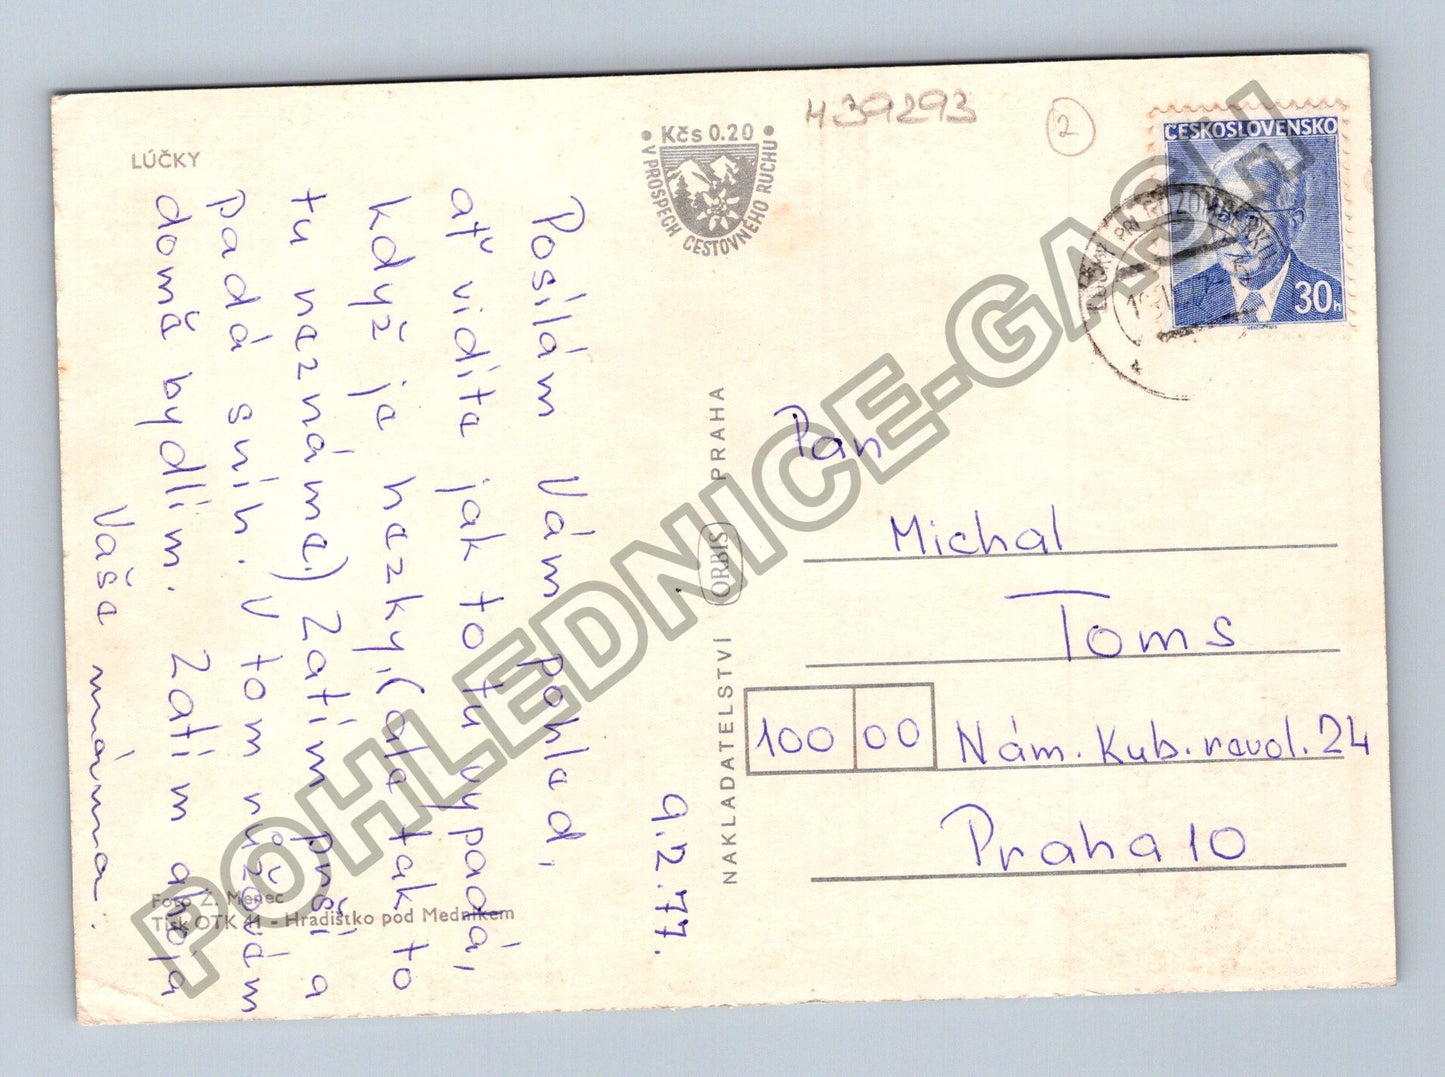 LÚČKY
• Kčs 0.20 •
V PROSPECH CESTOVNÉHO RUCHU
H39293
2
ČESKOSLOVENSKO
30h
9.2.77.
Posílám Vám pohled,
ať vidíte jak to tu vypadá,
když je hezky, (ale tak to
tu neznáme.) Zatím prší a
padá sníh. V tom nůžovám
domě bydlím. Zatím ahoja
Vaše máma.
Foto Z. Menec
Tisk OTK 41 - Hradištko pod Medníkem
NAKLADATELSTVÍ ORBIS PRAHA
Pan
Michal
Toms
100 00 Nám. Kub. revol. 24
Praha 10
POHLEDNICE-GASH